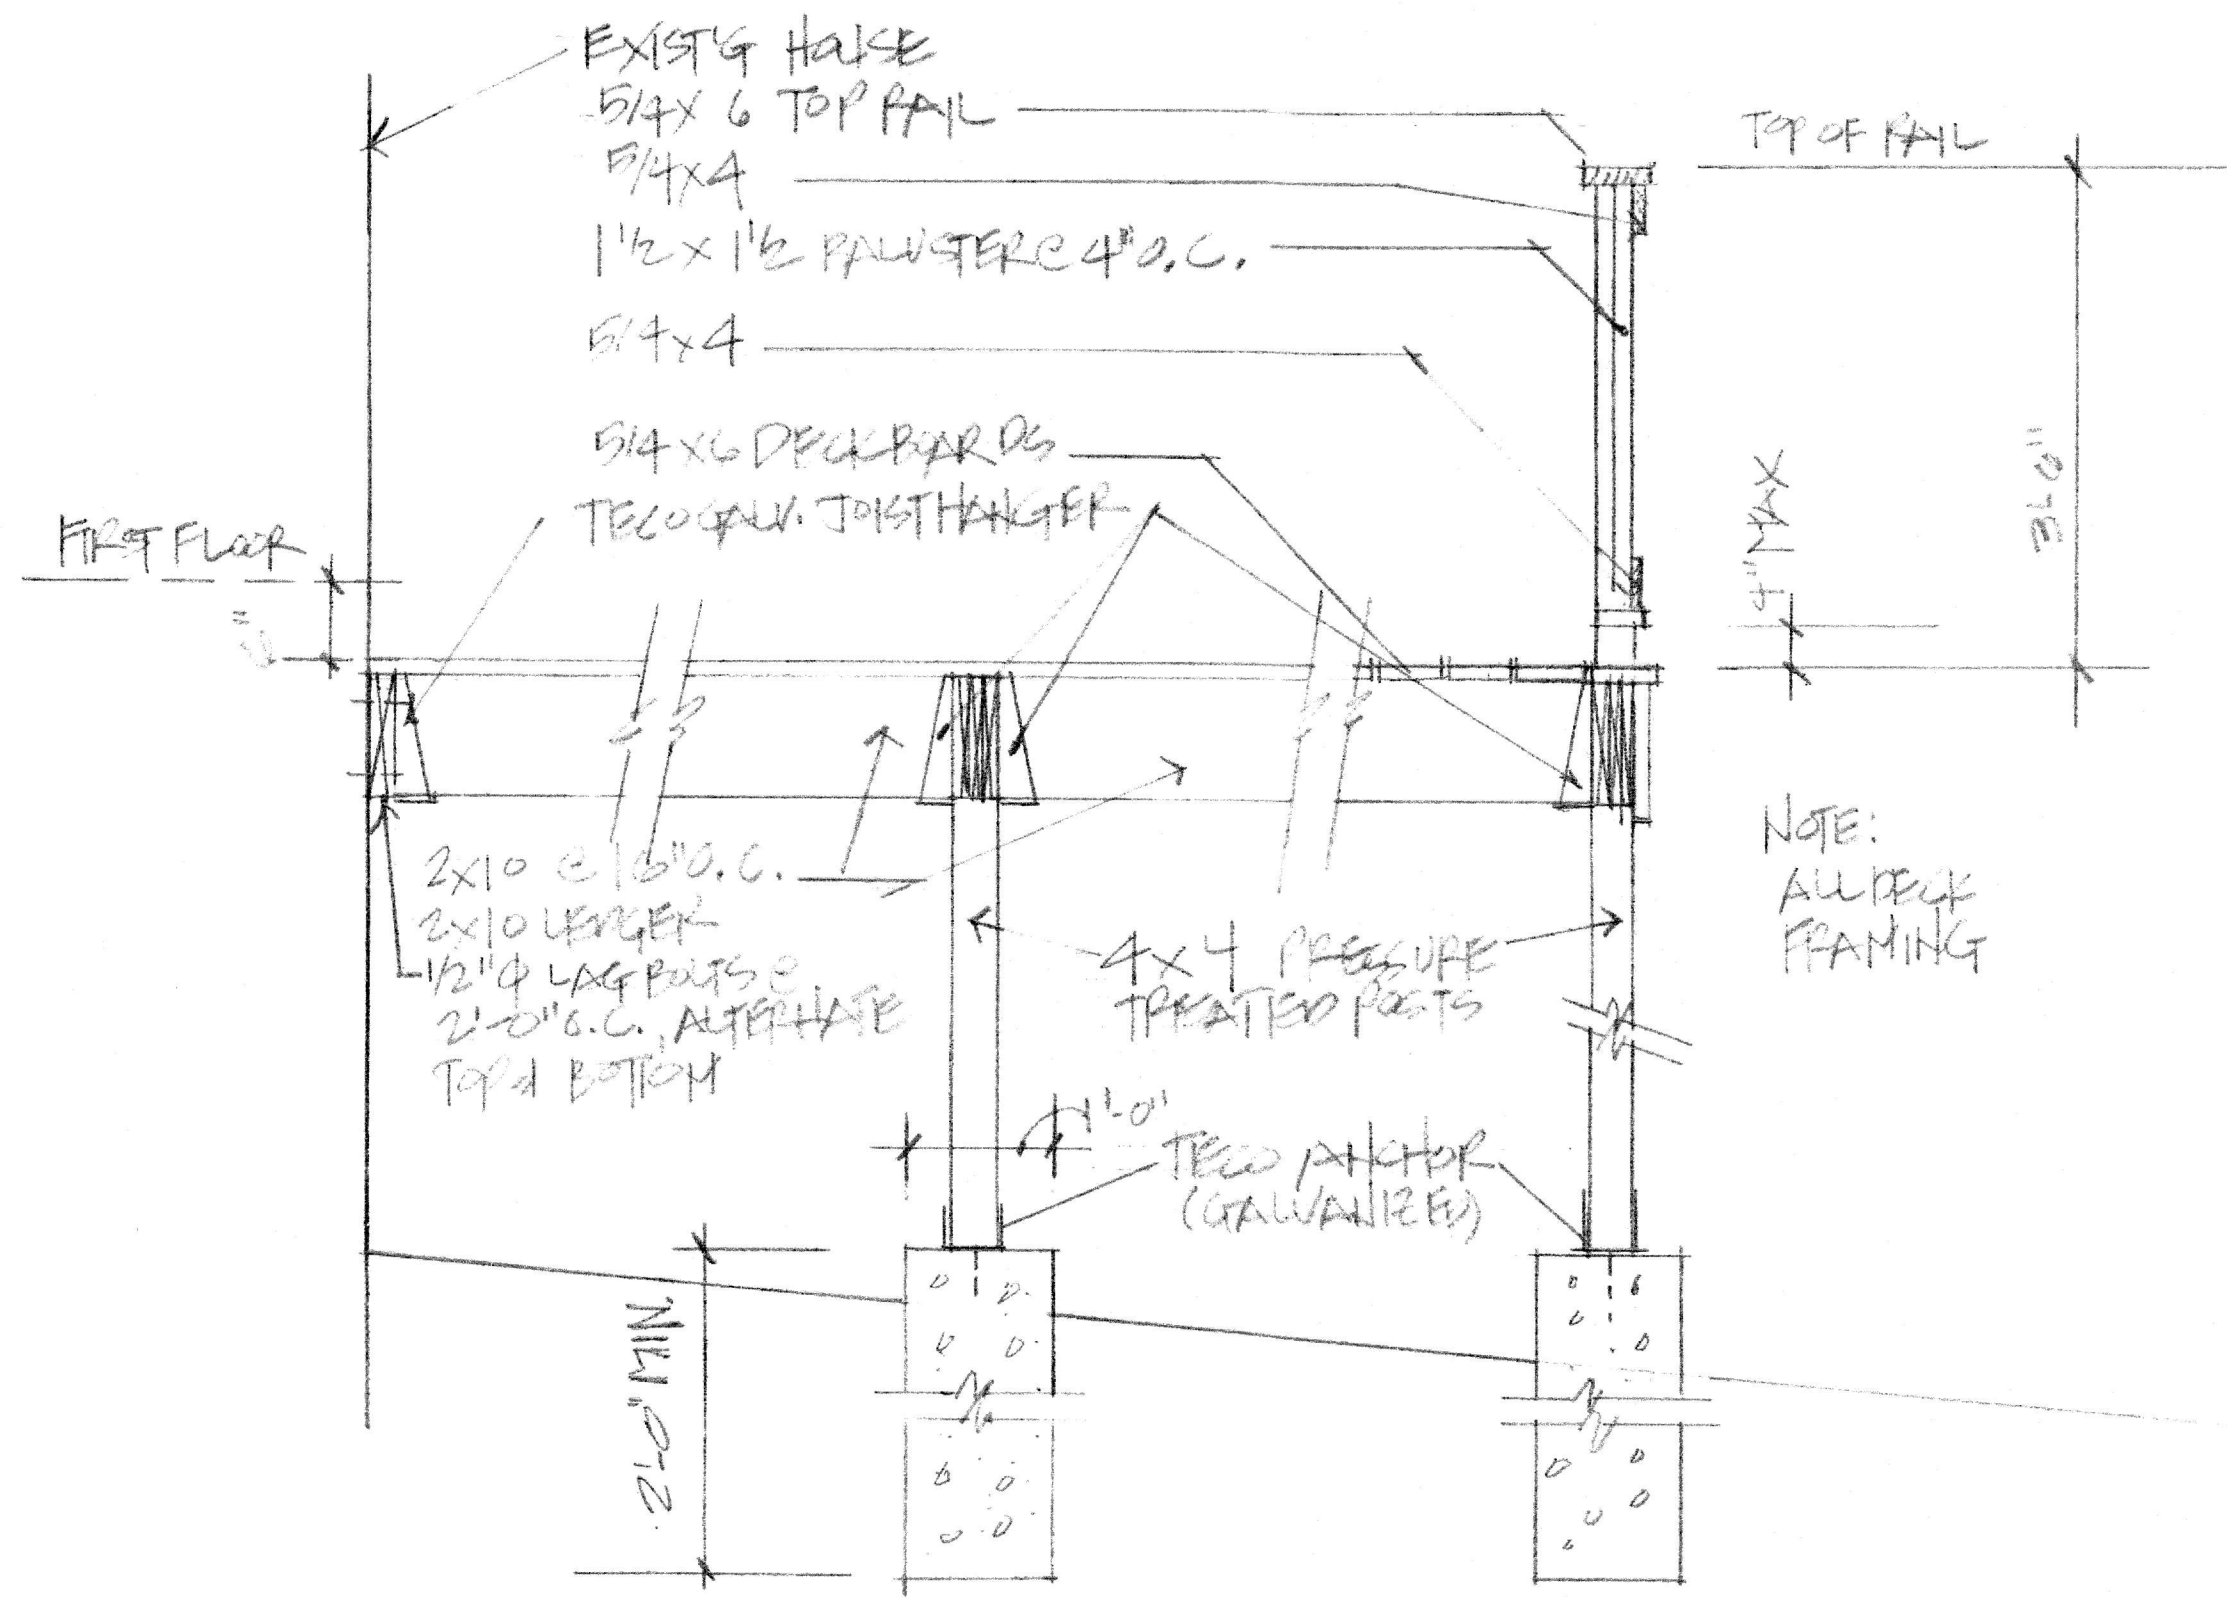 EXIST'G HOUSE
5/4 x 6 TOP RAIL
5/4 x 4
1 1/2 x 1 1/2 BALUSTER @ 4" O.C.
5/4 x 4
5/4 x 6 DECK BOARDS
TECO GALV. JOIST HANGER
TOP OF RAIL
3'-0"
4" MAX
FIRST FLOOR
2x10 @ 16" O.C.
2x10 LEDGER
1/2" φ LAG BOLTS @
2'-0" O.C. ALTERNATE
TOP & BOTTOM
4 x 4 PRESSURE
TREATED POSTS
NOTE:
ALL DECK
FRAMING
1'-0"
TECO ANCHOR
(GALVANIZED)
2'-0" MIN.